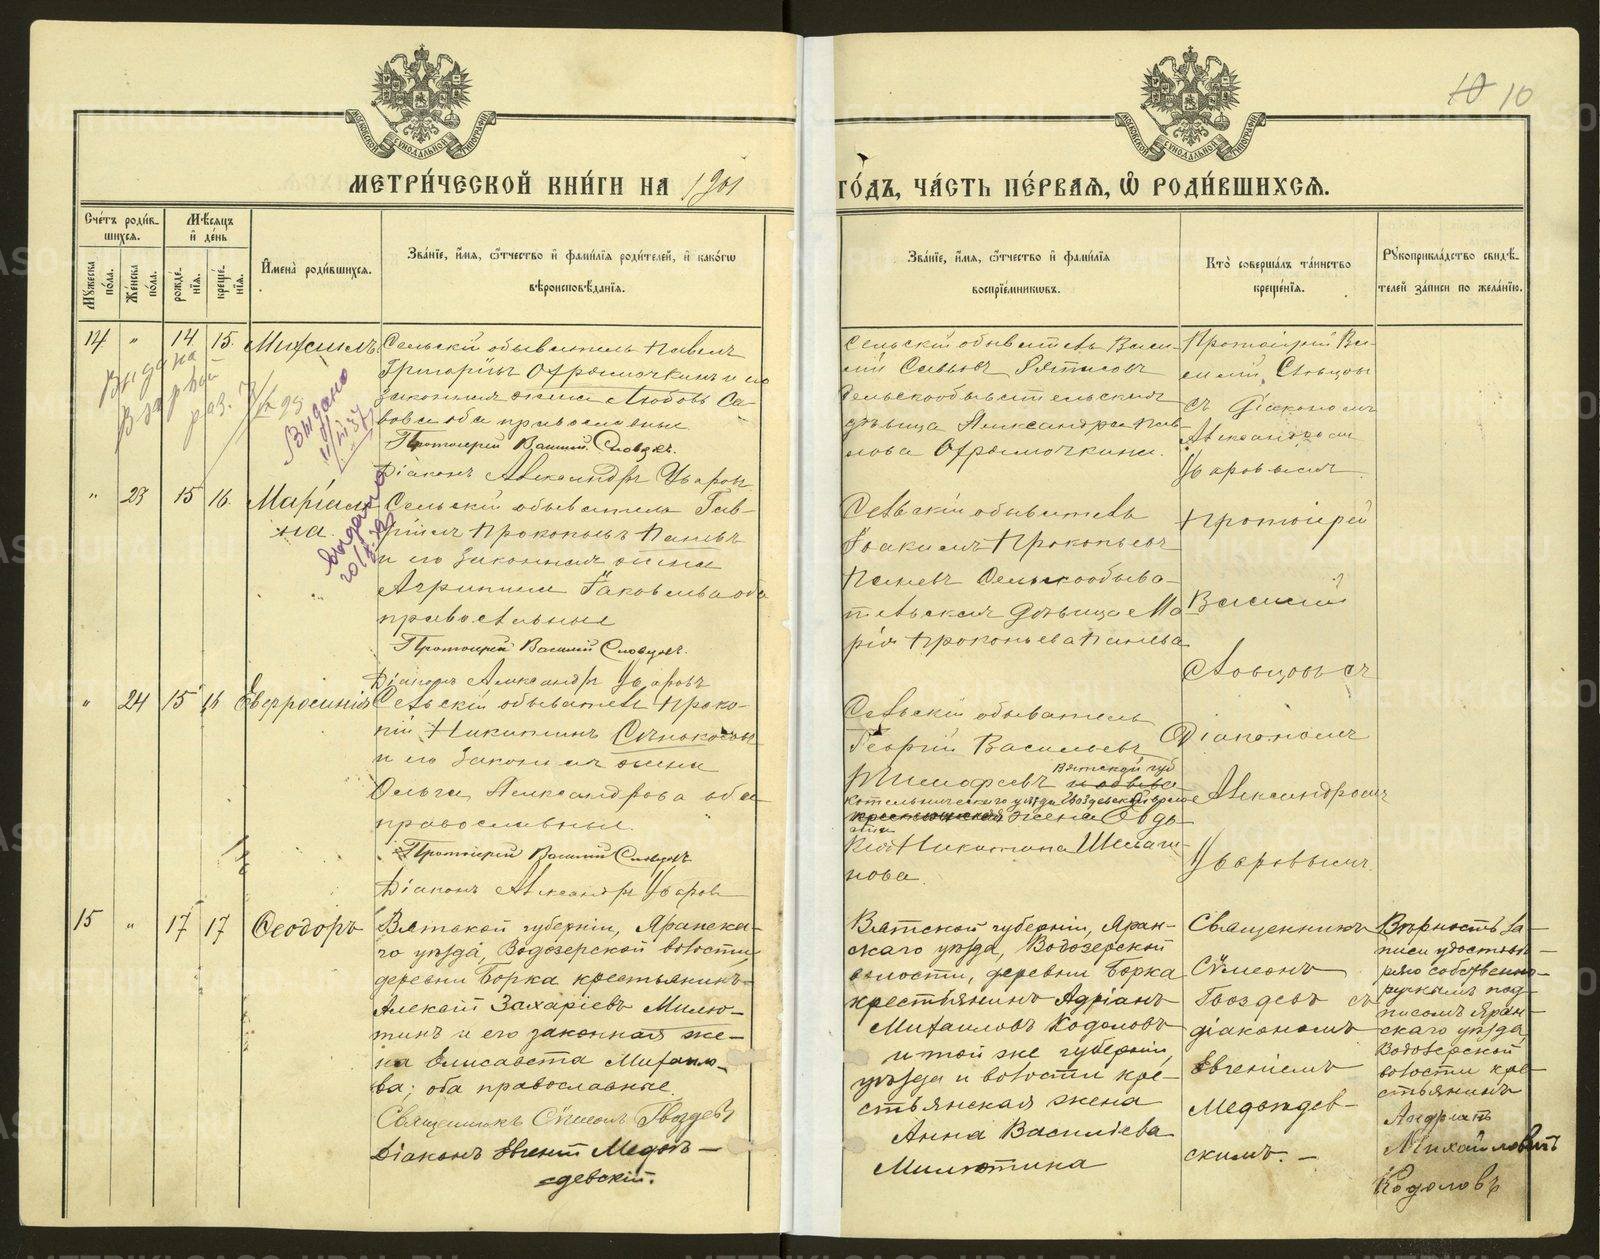 10 10
МЕТРИ́ЧЕСКОЙ КНИ́ГИ НА 1901
ГО́ДЪ, ЧА́СТЬ ПЕ́РВАѦ, Ѡ҆ РОДИ́ВШИХСѦ.
МОСКОВСКОЙ СѴНОДАЛЬНОЙ ТИПОГРАФІИ
МОСКОВСКОЙ СѴНОДАЛЬНОЙ ТИПОГРАФІИ
Сче́тъ роди́в-
шихсѧ.
Мꙋ́жеска по́ла.
Же́нска по́ла.
Мѣ́сѧцъ
и҆ де́нь
рожде́нїѧ.
креще́нїѧ.
И҆мена̀ роди́вшихсѧ.
Зва́нїе, и҆́мѧ, ѻ҆́тчество и҆ фами́лїѧ роди́телей, и҆ како́гѡ
вѣроисповѣ́данїѧ.
Зва́нїе, и҆́мѧ, ѻ҆́тчество и҆ фами́лїѧ
воспрїе́мникѡвъ.
Кто̀ соверша́лъ та́инство
креще́нїѧ.
Рꙋкоприкла́дство свидѣ́-
телей за́писи по жела́нїю.
14 „ 14 15. Михаилъ
Сельскій обыватель Павелъ
Григорьевъ и его
законная жена Любовь Са-
вова оба православные
Протоіерей Василій Словцовъ.
Діаконъ Александръ Уваровъ
Выдана
Выдано
Сельскій обыватель Васи-
лій Саввовъ
Сельскообывательская
дѣвица Александра Пав-
лова
Протоіерей Ва-
силій Словцовъ
съ діакономъ
Александромъ
Уваровымъ
„ 23 15 16. Маріам-
на.
Сельскій обыватель Гав-
ріилъ Прокопьевъ Паневъ
и его законная жена
Агрипина Іаковлева оба
православные
Протоіерей Василій Словцовъ.
Діаконъ Александръ Уваровъ
выдано
Сельскій обыватель
Іоакимъ Прокопьевъ
Паневъ Сельскообыва-
тельская дѣвица Ма-
рія Прокопьева Панева
Протоіерей
Василій
Словцовъ съ
„ 24 15 16 Евфросинія
Сельскій обыватель Проко-
пій Никитинъ
и его законная жена
Ольга Александрова оба
православные.
Протоіерей Василій Словцовъ
Діаконъ Александръ Уваровъ
Сельскій обыватель
Георгій Васильевъ
Тимофеевъ Вятской губ
Котельническаго уѣзда
жена Евдо-
кія Никитина
нова.
Діакономъ
Александромъ
Уваровымъ
15 „ 17 17 Ѳеодоръ
Вятской губерніи, Яранска-
го уѣзда, Водозерской волости
деревни Борка крестьянинъ
Алексій Захаріевъ Милю-
тинъ и его законная же-
на Елисавета Михаило-
ва; оба православные
Священникъ Сѵмеонъ Гвоздевъ
Діаконъ Евгеній Медвѣ-
девскій.
Вятской губерніи, Яран-
скаго уѣзда, Водозерской
волости, деревни Борка
крестьянинъ Адріанъ
Михаиловъ Кодоловъ
и той же губерніи,
уѣзда и волости кре-
стьянская жена
Анна Василіева
Милютина
Священникъ
Сѵмеонъ
Гвоздевъ съ
діакономъ
Евгеніемъ
Медвѣдев-
скимъ. –
Вѣрность за-
писи удостовѣ-
ряю собственно-
ручнымъ под-
писомъ Яран-
скаго уѣзда
Водозерской
волости кре-
стьянинъ
Андріанъ
Михайловичъ
Кодоловъ